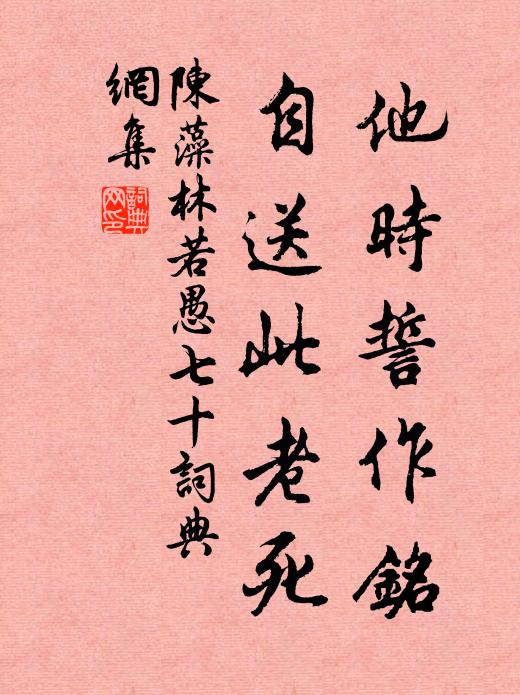 他時誓作銘
自送此老死
陳藻林若愚七十詞典
網集
詞典網印